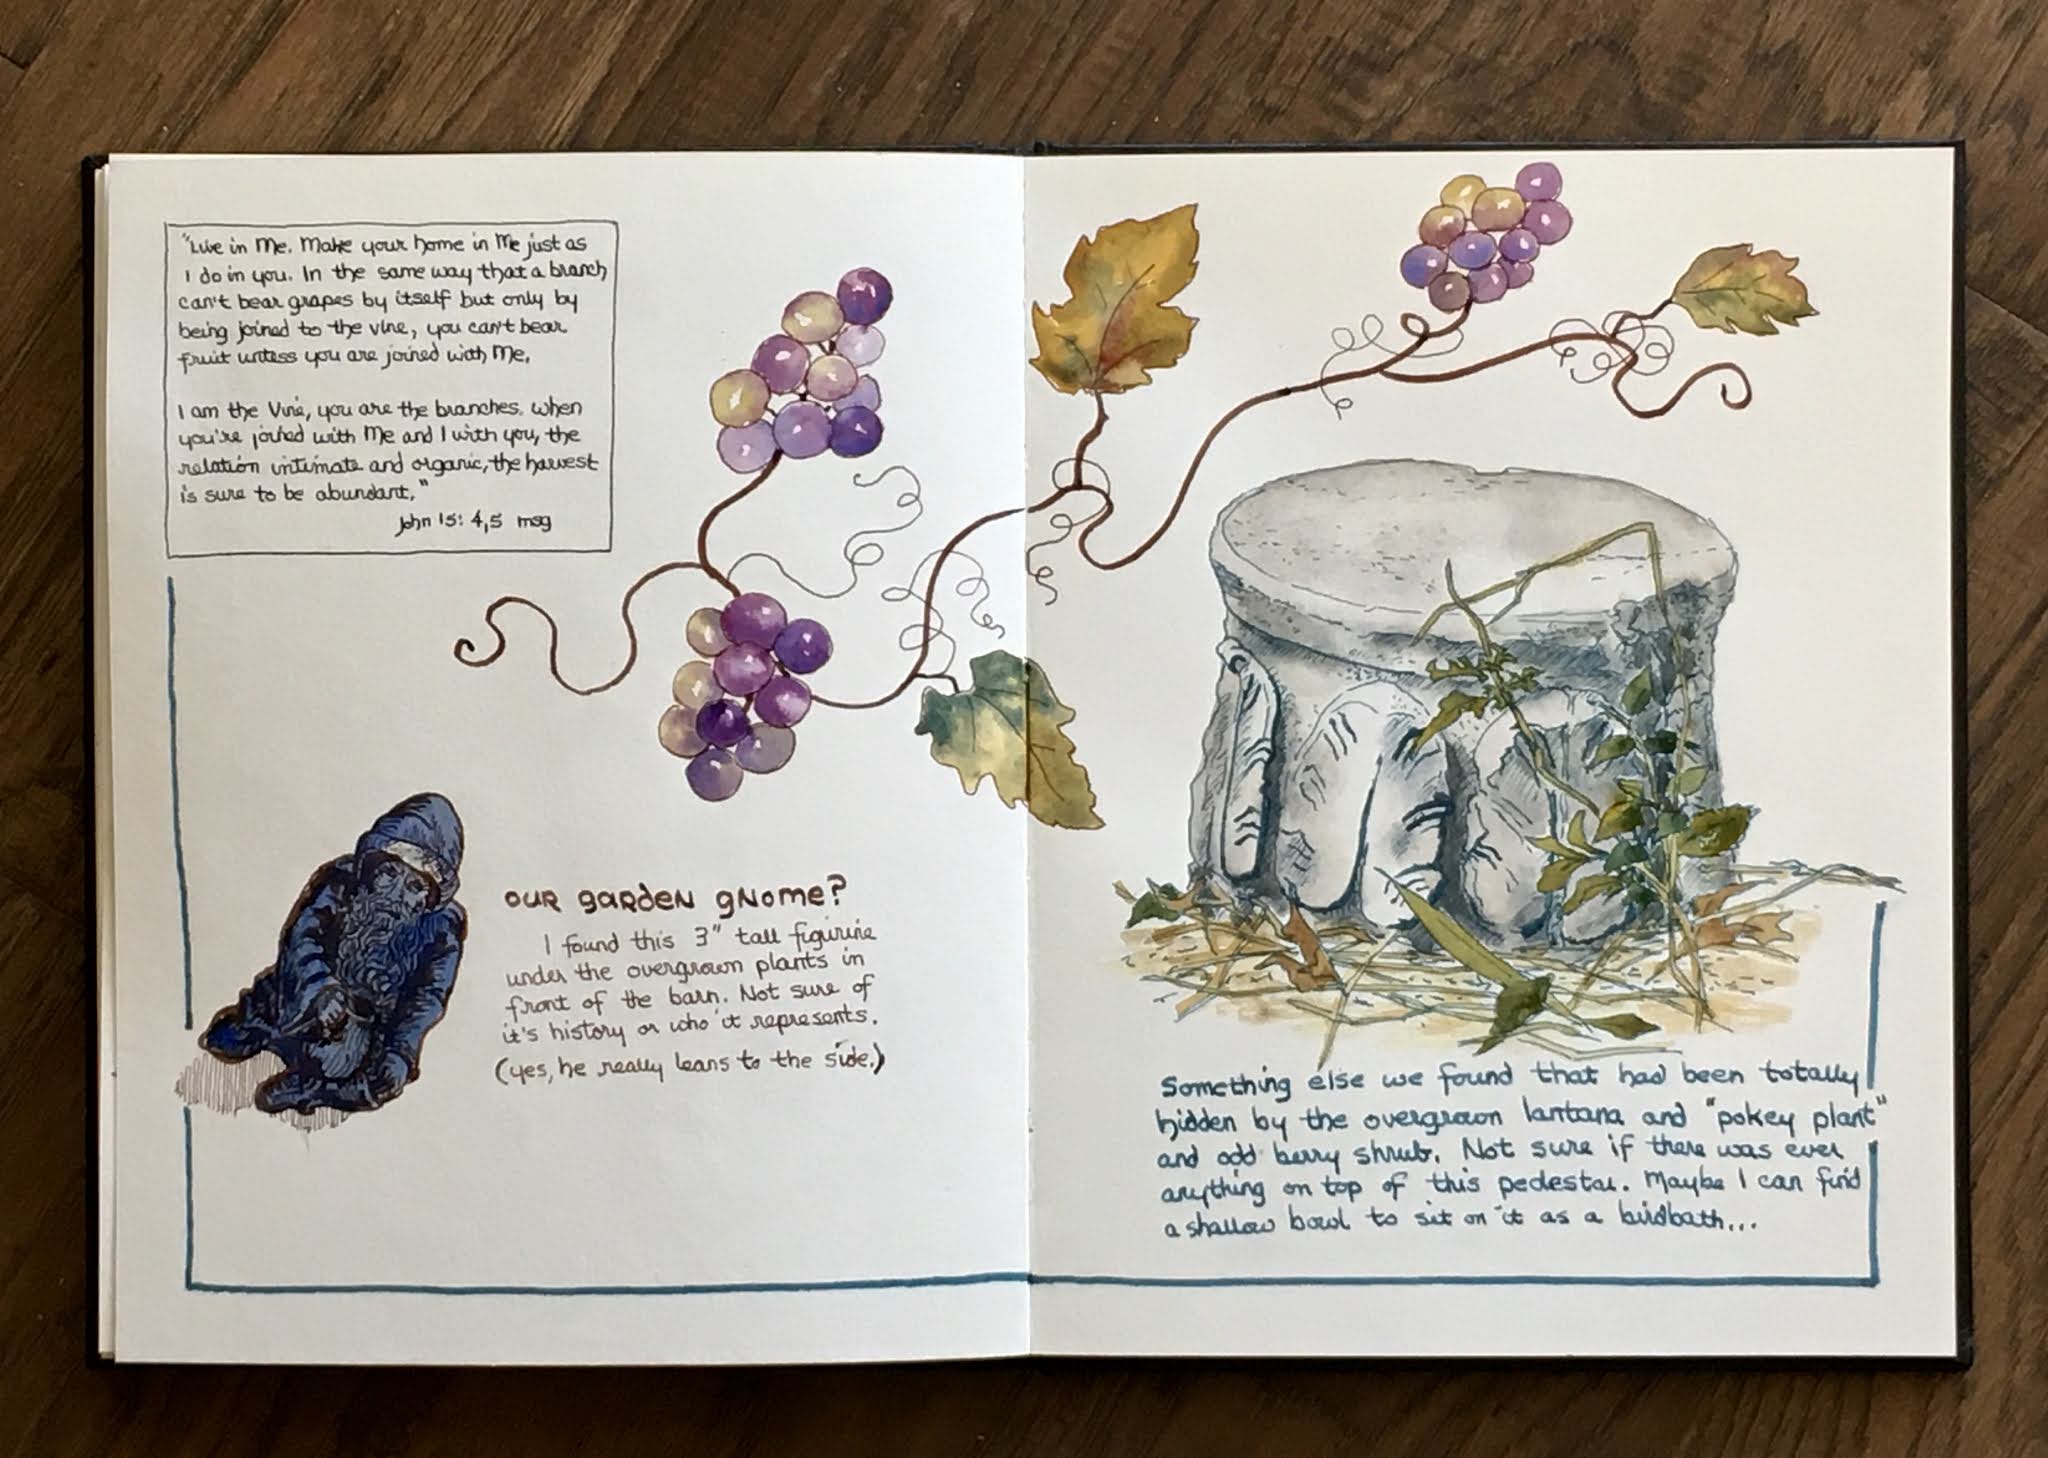 "Live in Me. Make your home in Me just as
I do in you. In the same way that a branch
can't bear grapes by itself but only by
being joined to the vine, you can't bear
fruit unless you are joined with Me.
I am the Vine, you are the branches. When
you're joined with Me and I with you, the
relation intimate and organic, the harvest
is sure to be abundant."
John 15: 4,5 msg
OUR GARDEN GNOME?
I found this 3" tall figurine
under the overgrown plants in
front of the barn. Not sure of
it's history or who it represents.
(yes, he really leans to the side.)
Something else we found that had been totally
hidden by the overgrown lantana and "pokey plant"
and odd berry shrub. Not sure if there was ever
anything on top of this pedestal. Maybe I can find
a shallow bowl to sit on it as a birdbath...